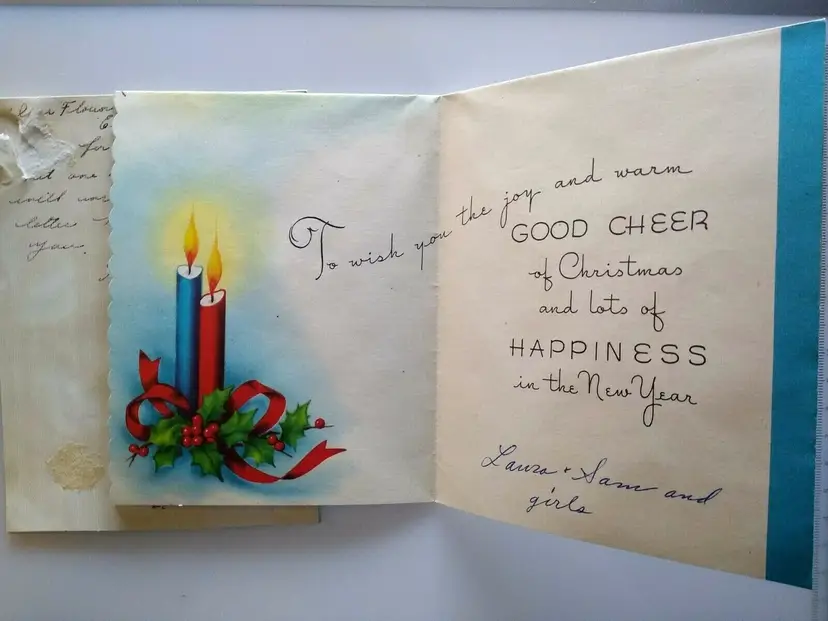 Flour
for
one
letter
you.
To wish you the joy and warm
GOOD CHEER
of Christmas
and lots of
HAPPINESS
in the New Year
Laura + Sam and
girls